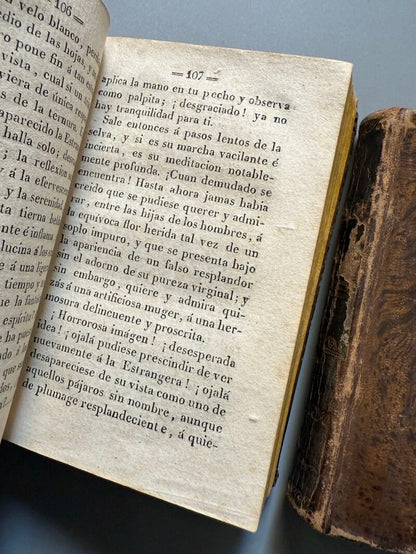 = 106 =
velo blanco,
dio de las hojas, y
ro pone fin á tan
vista, cual si un
viera de única res
de la ternura.
aparecido la Estran
halla solo; des
; la reflexion
á la eferves
y la serenid
tierna bel
é inflama
lucina á los
á una lige
tiempo y
= 107 =
aplica la mano en tu pecho y observa
como palpita; ¡desgraciado! ya no
hay tranquilidad para tí.
Sale entonces á pasos lentos de la
selva, y si es su marcha vacilante é
incierta, es su meditacion notable-
mente profunda. ¡Cuan demudado se
encuentra! Hasta ahora jamas habia
creido que se pudiese querer y admi-
rar, entre las hijas de los hombres, á
la equívoca flor herida tal vez de un
soplo impuro, y que se presenta bajo
la apariencia de un falso resplandor
sin el adorno de su pureza virginal; y
sin embargo, quiere y admira qui-
zás á una artificiosa muger, á una her-
mosura delincuente y proscrita.
¡Horrorosa imágen! ¡desesperada
idea! ¡ojalá pudiese prescindir de ver
nuevamente á la Estrangera! ¡ojalá
desapareciese de su vista como uno de
aquellos pájaros sin nombre, aunque
de plumage resplandeciente, á quie-